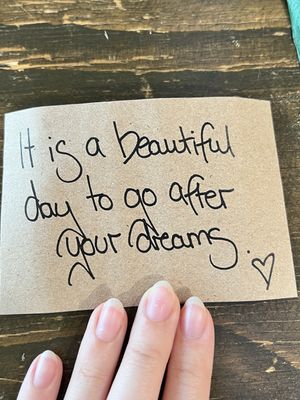 It is a beautiful
day to go after
your dreams.